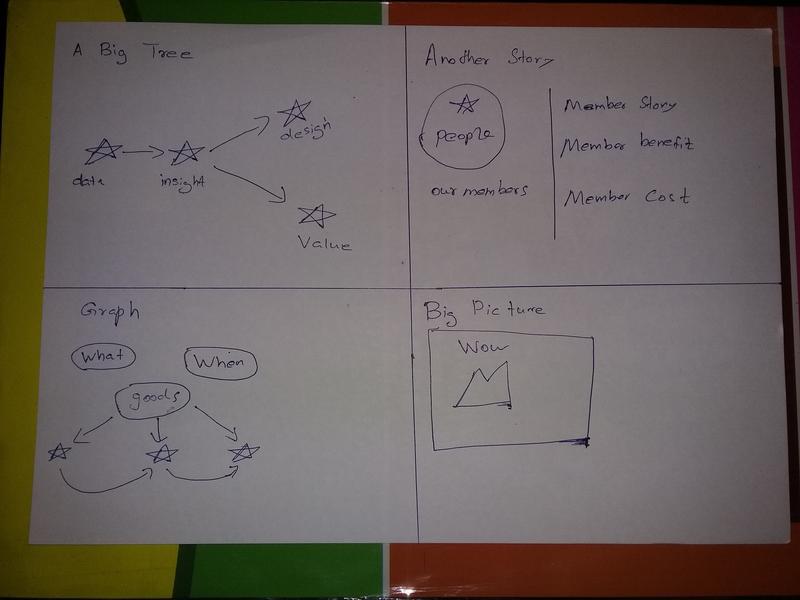 A Big Tree
design
data
insight
Value
Another Story
people
our members
Member Story
Member benefit
Member Cost
Graph
What
When
goods
Big Picture
Wow